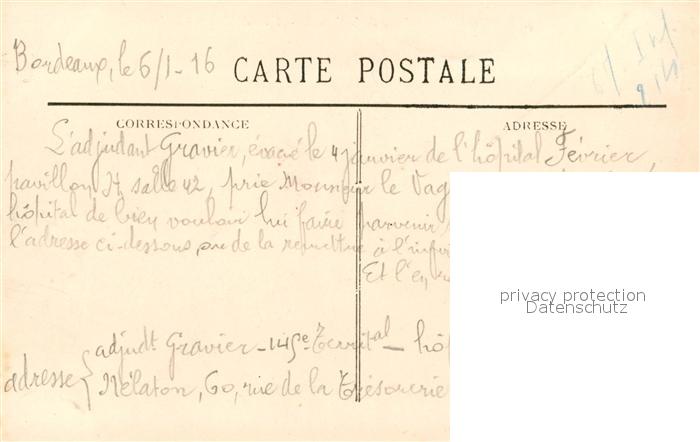 Bordeaux, le 6/1-16
CARTE POSTALE
CORRESPONDANCE
ADRESSE
L'adjudant Gravier, évacué le 4 janvier de l'hôpital Février,
pavillon H, salle 42, prie Monsieur le Vag
hôpital de bien vouloir lui faire parvenir
l'adresse ci-dessous, ou de la remettre à l'infir
Et l'en
privacy protection
Datenschutz
adresse
adjudt Gravier - 145e Territal - hô
Nélaton, 60, rue de la Trésorerie